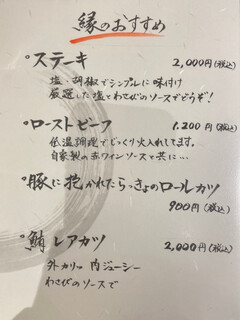 縁のおすすめ
°ステーキ 2,000円(税込)
塩・胡椒でシンプルに味付け
厳選した塩とわさびのソースでどうぞ!
°ローストビーフ 1,200円(税込)
低温調理でじっくり火入れしてます。
自家製の赤ワインソースと共に…
°豚に抱かれたらっきょのロールカツ
900円(税込)
°鮪レアカツ 2,000円(税込)
外カリッ 内ジューシー
わさびのソースで